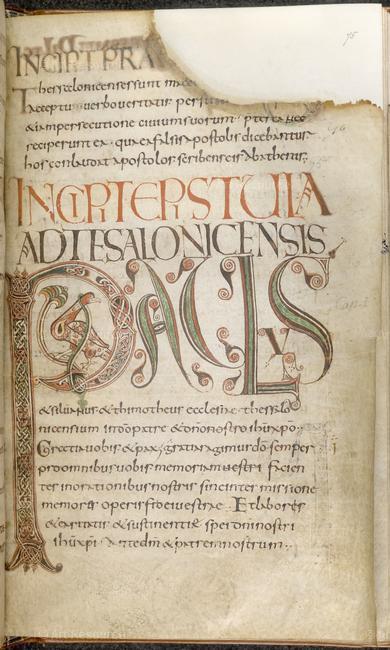 75
INCIPIT PRA
Thessalonicenses sunt mace
accepto uerbo ueritatis persti
& in persecutione ciuium suorum preterea nec
receperunt ea quae a falsis apostolis dicebantur
hos conlaudat apostolos scribens eis ab athenis
INCIPIT EPISTULA
AD TESALONICENSIS
PAULUS
& siluanus & thimotheus ecclesiae thessalo
nicensium in do patre & dno nostro ihu xpo
Gratia uobis & pax gratias agimus do semper
pro omnibus uobis memoriam uestri facien
tes in orationibus nostris sine intermissione
memores operis fidei uestrae Et laboris
& caritatis & sustinentiae spei dni nostri
ihu xpi Ante dm & patrem nostrum